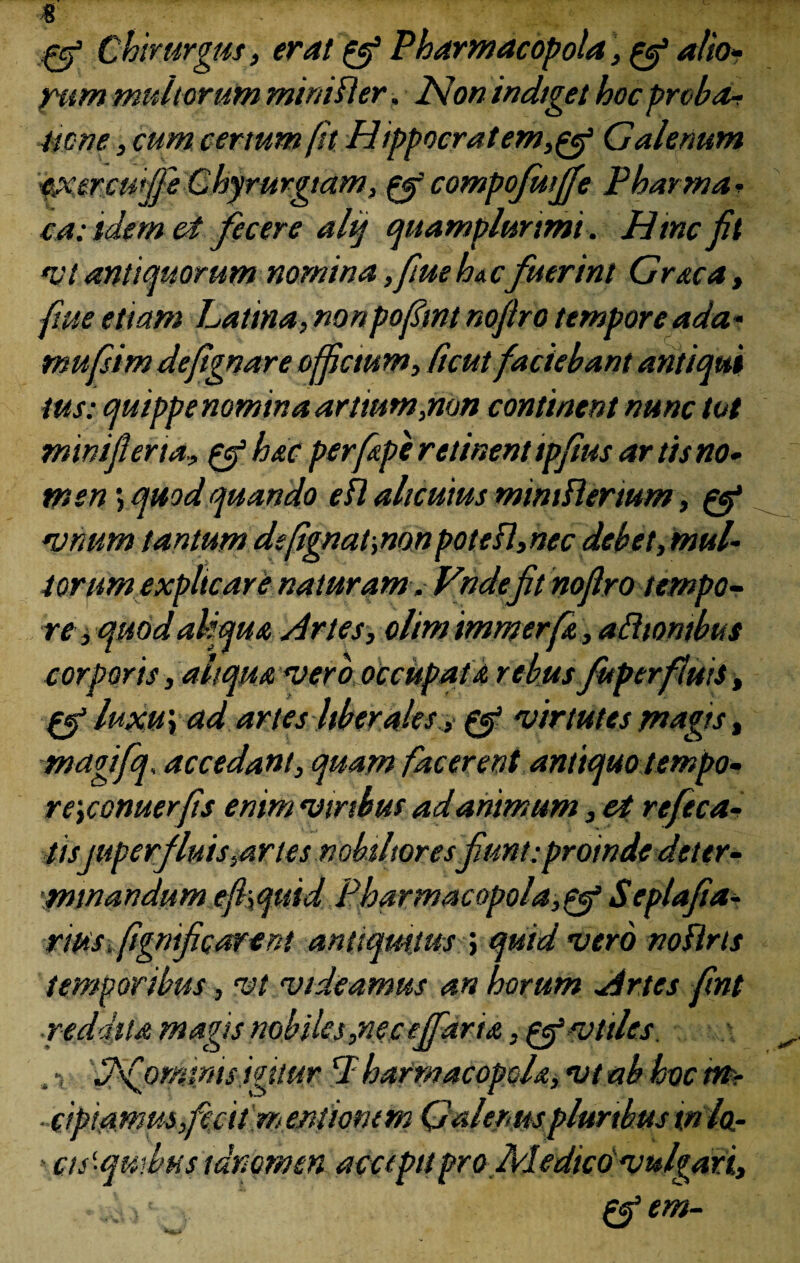 8
& Chirurgus, erat & Pharmacopola, & alio-
rum multorum miniſter. Non indiget hoc proba-
tione, cum certum ſit Hippocratem, & Galenum
exercuiſſe Chyrurgiam, & compoſuiſſe Pharma-
ca: idem et fecere alij quamplurimi. Hinc fit
vt antiquorum nomina, ſiue hæc fuerint Græca,
ſiue etiam Latina, non poſsint noſtro tempore ada-
muſsim deſignare officium, ſicut faciebant antiqui
tus: quippe nomina artium, non continent nunc tot
miniſteria, & hæc perſæpè retinent ipſius artis no-
men; quod quando eſt alicuius miniſterium, &
vnum tantum deſignat; non poteſt, nec debet, mul-
torum explicare naturam. Vnde fit noſtro tempo-
re, quod aliquæ Artes, olim immerſæ, actionibus
corporis, aliquæ verò occupatæ rebus ſuperfluis,
& luxu; ad artes liberales, & virtutes magis,
magiſq. accedant, quam facerent antiquo tempo-
re; conuerſis enim viribus ad animum, et reſeca-
tis ſuperfluis, artes nobiliores fiunt: proinde deter-
minandum eſt; quid Pharmacopola, & Seplaſia-
rius ſignificarent antiquitus; quid verò noſtris
temporibus, vt videamus an horum Artes ſint
redditæ magis nobiles, neceſſariæ, & vtiles.
Nominis igitur Pharmacopolæ, vt ab hoc in-
cipiamus, fecit mentionem Galenus pluribus in lo-
cis: quibus id nomen accepit pro Medico vulgari,
& em-